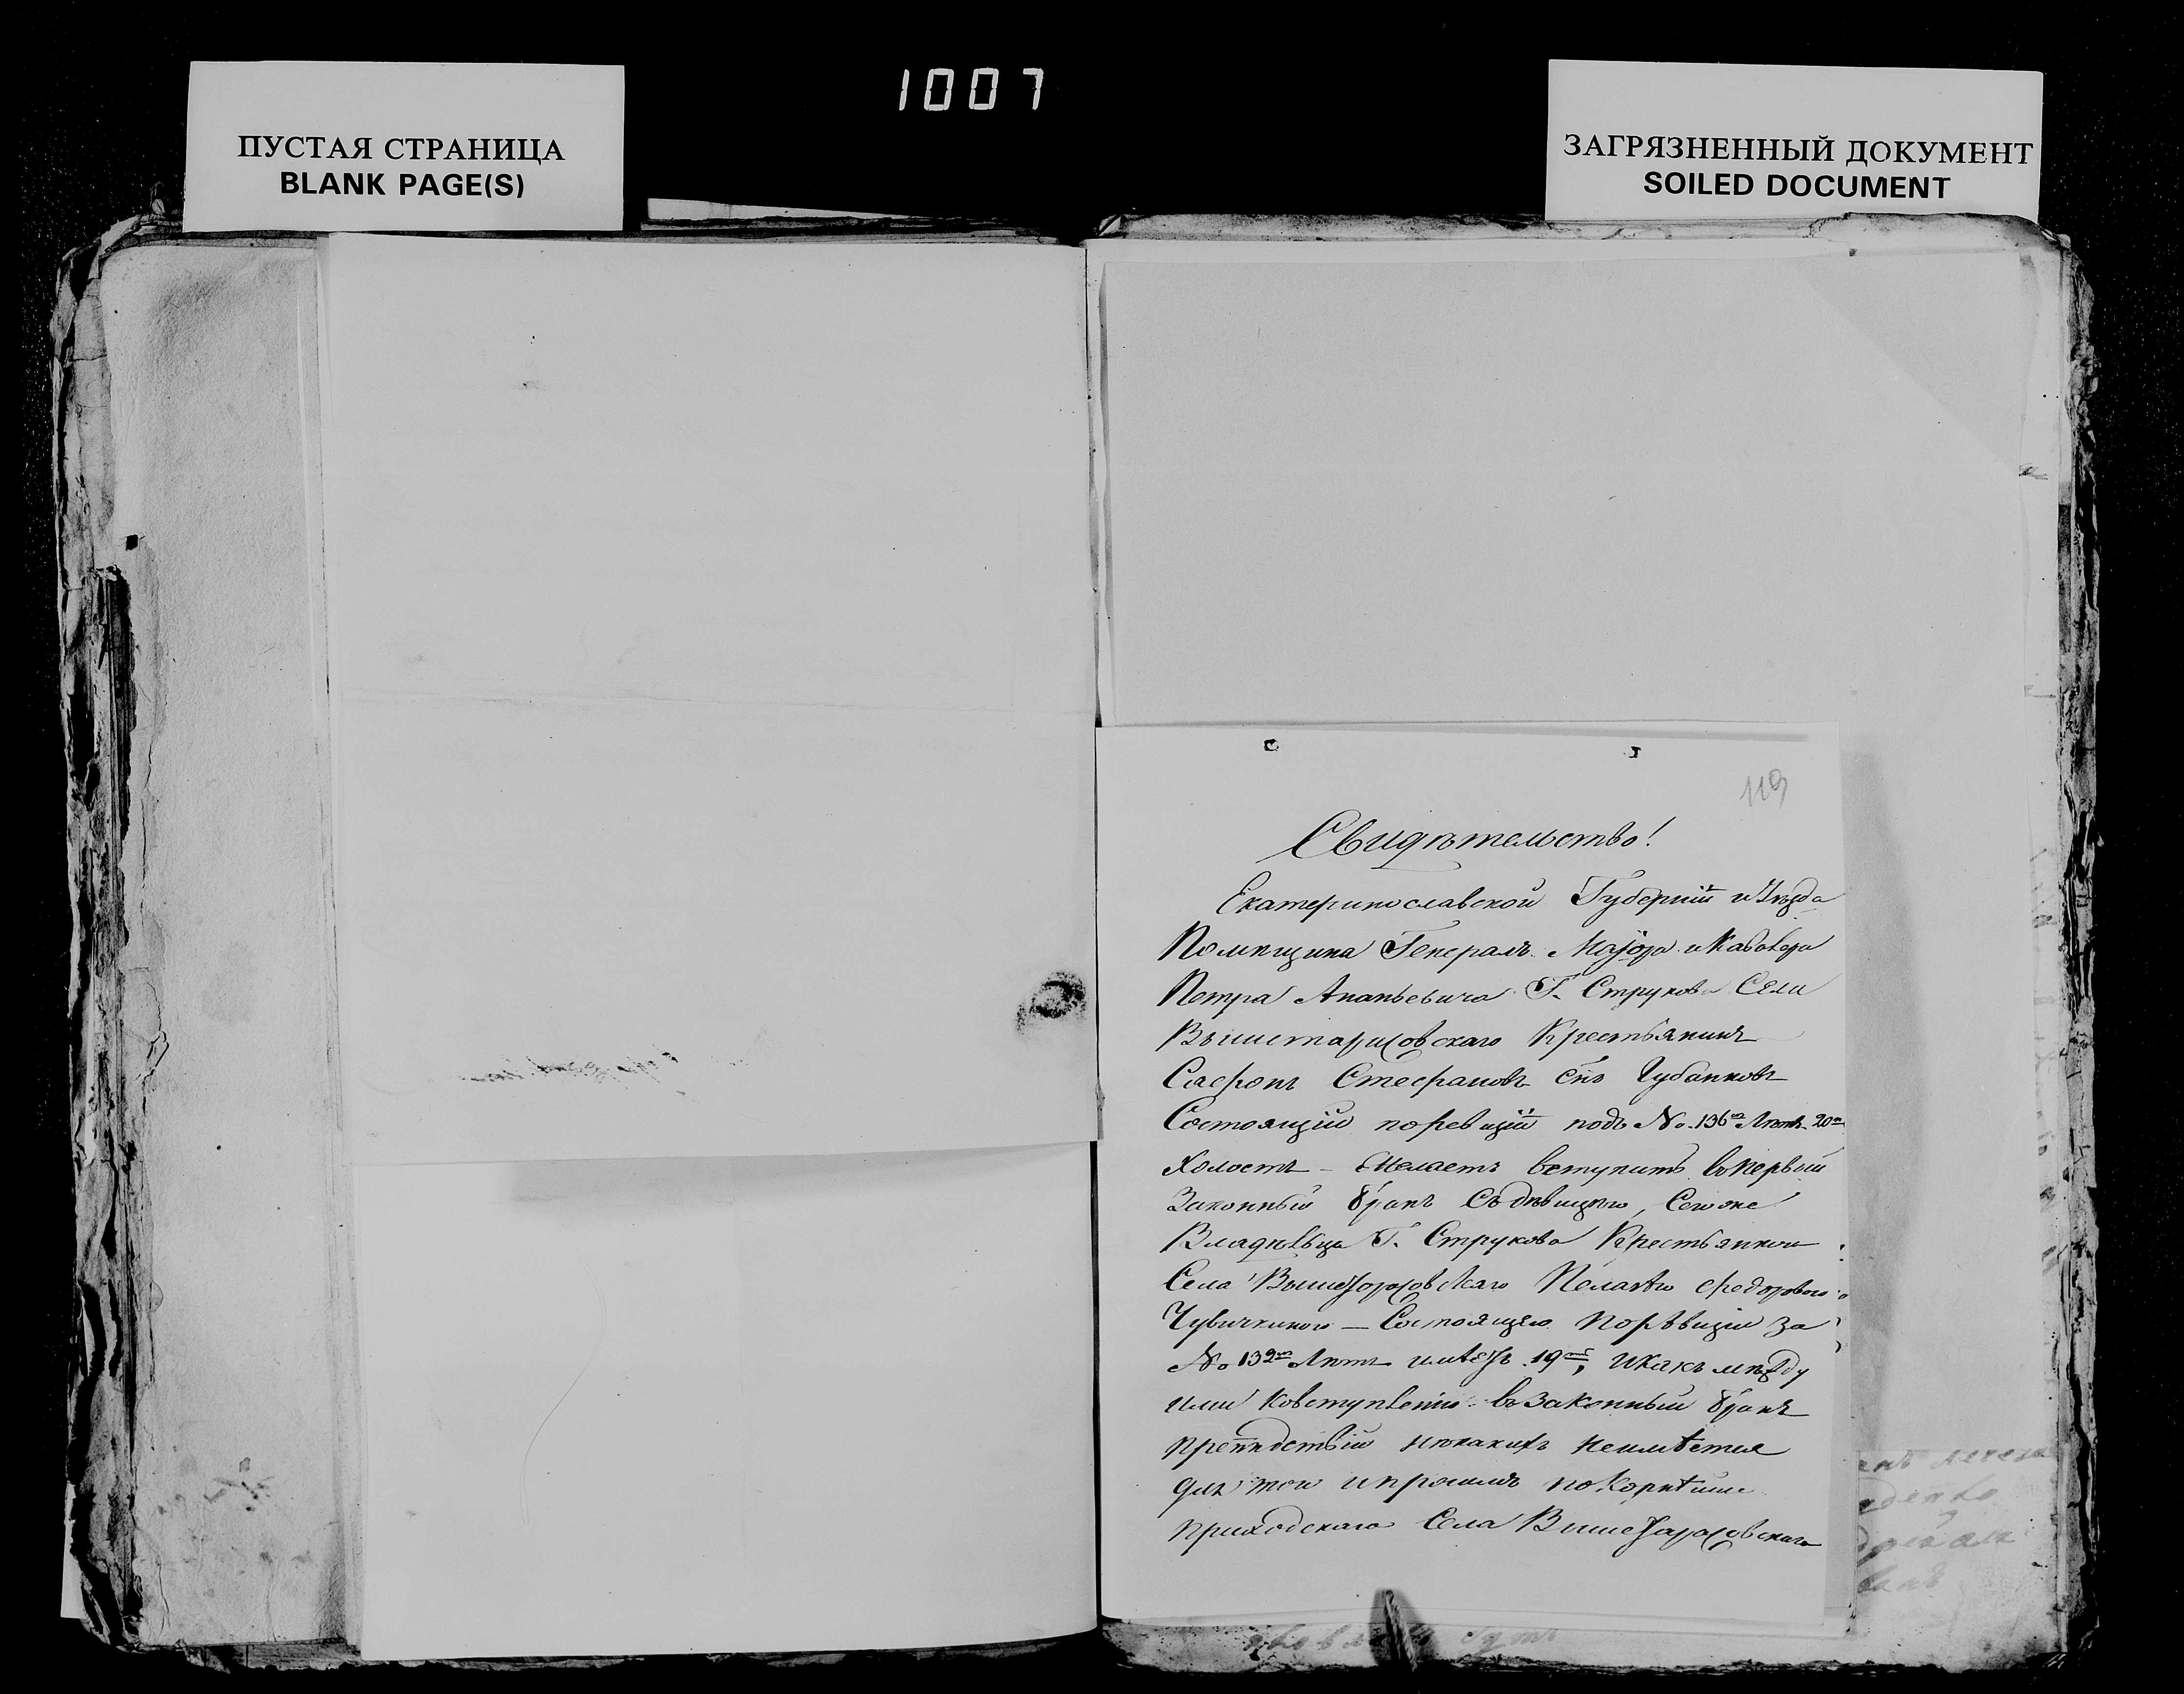 1007
ПУСТАЯ СТРАНИЦА
BLANK PAGE(S)
ЗАГРЯЗНЕННЫЙ ДОКУМЕНТ
SOILED DOCUMENT
119
Свидѣтельство!
Екатеринославской Губерніи и Уѣзда
Помѣщика Генералъ Маіора и Кавалера
Петра Ананьевича Г. Струкова Села
Вышетарасовскаго Крестьянинъ
Сафронъ Стефановъ снъ Чубанковъ
Состоящій поревизіи подъ No. 136м Лѣтъ 20
холостъ – Желаетъ вступить вопервый
Законный бракъ Съдѣвицею, Сегоже
Владѣльца Г. Струкова Крестьянкою
Села Вышетарасовскаго Пелагѣю Федоровою
Чувичкиною – Состоящею Порѣвизіи За
No 132м Лѣтъ имѣетъ 19, Икакъ между
ими Ковступленію въ законный бракъ
препядствій никакихъ неимѣется
для того ипросимъ покорнѣише
приходскаго Села Вишетарасовскаго